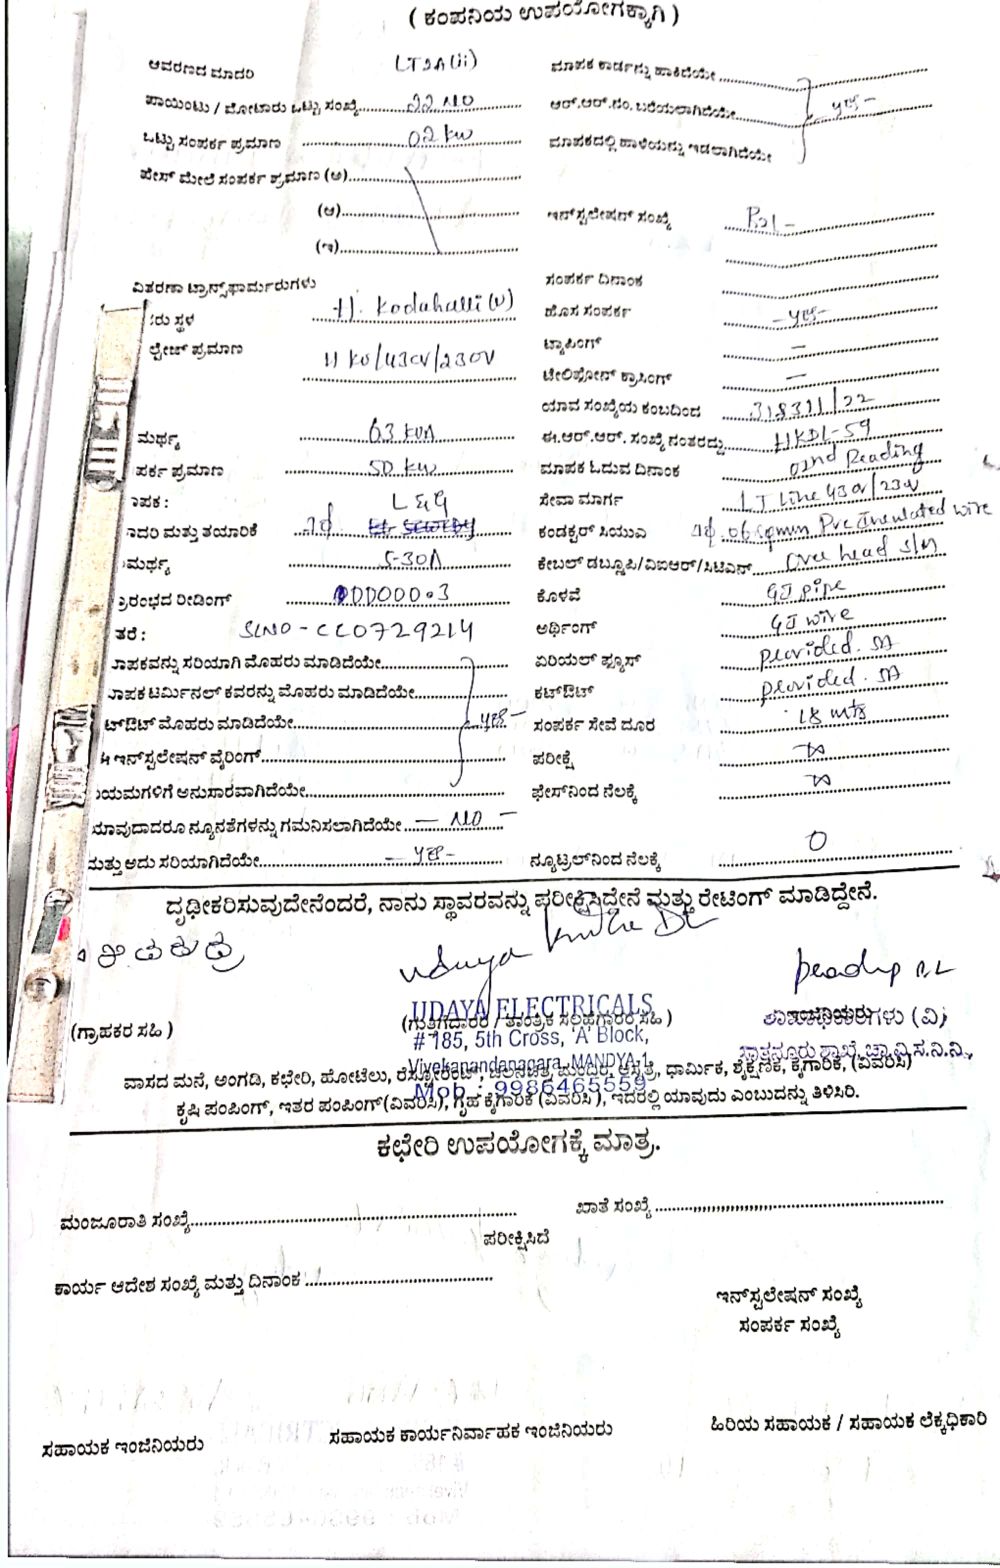 ( ಕಂಪನಿಯ ಉಪಯೋಗಕ್ಕಾಗಿ )
ಆವರಣದ ಮಾದರಿ LT2A(ii)
ಪಾಯಿಂಟು / ಮೋಟಾರು ಒಟ್ಟು ಸಂಖ್ಯೆ 22 NO
ಒಟ್ಟು ಸಂಪರ್ಕ ಪ್ರಮಾಣ 02 kw
ಪೇಸ್ ಮೇಲೆ ಸಂಪರ್ಕ ಪ್ರಮಾಣ (ಅ)
(ಆ)
(ಇ)
ವಿತರಣಾ ಟ್ರಾನ್ಸ್‌ಫಾರ್ಮರುಗಳು
ರು ಸ್ಥಳ H. Kodahalli (V)
ಲ್ಟೇಜ್ ಪ್ರಮಾಣ 11 KV/430V/230V
ಮರ್ಥ್ಯ 63 KVA
ಪರ್ಕ ಪ್ರಮಾಣ 50 kw
ಾಪಕ : L & G
ಾದರಿ ಮತ್ತು ತಯಾರಿಕೆ 1ϕ
ಮರ್ಥ್ಯ 5-30A
್ರಾರಂಭದ ರೀಡಿಂಗ್ 000000.3
ತರೆ : SLNO - CC0729214
ಾಪಕವನ್ನು ಸರಿಯಾಗಿ ಮೊಹರು ಮಾಡಿದೆಯೇ
ಾಪಕ ಟರ್ಮಿನಲ್ ಕವರನ್ನು ಮೊಹರು ಮಾಡಿದೆಯೇ
ಟ್‌ಔಟ್ ಮೊಹರು ಮಾಡಿದೆಯೇ yes -
ಇನ್‌ಸ್ಟಲೇಷನ್ ವೈರಿಂಗ್
ಯಮಗಳಿಗೆ ಅನುಸಾರವಾಗಿದೆಯೇ
ಯಾವುದಾದರೂ ನ್ಯೂನತೆಗಳನ್ನು ಗಮನಿಸಲಾಗಿದೆಯೇ - NO -
ಮತ್ತು ಅದು ಸರಿಯಾಗಿದೆಯೇ - yes -
ಮಾಪಕ ಕಾರ್ಡನ್ನು ಹಾಕಿದೆಯೇ
ಆರ್.ಆರ್.ನಂ. ಬರೆಯಲಾಗಿದೆಯೇ yes -
ಮಾಪಕದಲ್ಲಿ ಹಾಳೆಯನ್ನು ಇಡಲಾಗಿದೆಯೇ
ಇನ್‌ಸ್ಟಲೇಷನ್ ಸಂಖ್ಯೆ
ಸಂಪರ್ಕ ದಿನಾಂಕ
ಹೊಸ ಸಂಪರ್ಕ - yes -
ಟ್ಯಾಪಿಂಗ್ -
ಟೇಲಿಫೋನ್ ಕ್ರಾಸಿಂಗ್ -
ಯಾವ ಸಂಖ್ಯೆಯ ಕಂಬದಿಂದ 318311/22
ಈ.ಆರ್.ಆರ್. ಸಂಖ್ಯೆ ನಂತರದ್ದು HKDL-59
ಮಾಪಕ ಓದುವ ದಿನಾಂಕ 02nd Reading
ಸೇವಾ ಮಾರ್ಗ LT Line 430V/230V
ಕಂಡಕ್ಟರ್ ಸಿಯುಎ 1ϕ. 06 sqmm Pvc Insulated wire
ಕೇಬಲ್ ಡಬ್ಲೂಪಿ/ವಿಐಆರ್/ಸಿಟಿಎಸ್ Over head S/M
ಕೊಳವೆ GI pipe
ಅರ್ಥಿಂಗ್ GI wire
ಏರಿಯಲ್ ಫ್ಯೂಸ್ provided. 5A
ಕಟ್‌ಔಟ್ provided. 5A
ಸಂಪರ್ಕ ಸೇವೆ ದೂರ 18 mts
ಪರೀಕ್ಷೆ ∞
ಫೇಸ್‌ನಿಂದ ನೆಲಕ್ಕೆ ∞
ನ್ಯೂಟ್ರಲ್‌ನಿಂದ ನೆಲಕ್ಕೆ 0
ದೃಢೀಕರಿಸುವುದೇನೆಂದರೆ, ನಾನು ಸ್ಥಾವರವನ್ನು ಪರೀಕ್ಷಿಸಿದ್ದೇನೆ ಮತ್ತು ರೇಟಿಂಗ್ ಮಾಡಿದ್ದೇನೆ.
(ಗ್ರಾಹಕರ ಸಹಿ )
(ಗುತ್ತಿಗೆದಾರರ / ತಾಂತ್ರಿಕ ಸಲಹೆಗಾರರ ಸಹಿ )
UDAYA ELECTRICALS
# 185, 5th Cross, 'A' Block,
Vivekanandanagara, MANDYA-1.
Mob : 9986465559
ವಾಸದ ಮನೆ, ಅಂಗಡಿ, ಕಛೇರಿ, ಹೋಟೆಲು, ರೆಸ್ಟೋರೆಂಟ್, ಚಲನಚಿತ್ರ, ಮಂದಿರ, ಆಸ್ಪತ್ರೆ, ಧಾರ್ಮಿಕ, ಶೈಕ್ಷಣಿಕ, ಕೈಗಾರಿಕೆ, (ವಿವರಿಸಿ)
ಕೃಷಿ ಪಂಪಿಂಗ್, ಇತರ ಪಂಪಿಂಗ್(ವಿವರಿಸಿ), ಗೃಹ ಕೈಗಾರಿಕೆ (ವಿವರಿಸಿ ), ಇದರಲ್ಲಿ ಯಾವುದು ಎಂಬುದನ್ನು ತಿಳಿಸಿರಿ.
ಕಛೇರಿ ಉಪಯೋಗಕ್ಕೆ ಮಾತ್ರ.
ಮಂಜೂರಾತಿ ಸಂಖ್ಯೆ
ಖಾತೆ ಸಂಖ್ಯೆ
ಪರೀಕ್ಷಿಸಿದೆ
ಕಾರ್ಯ ಆದೇಶ ಸಂಖ್ಯೆ ಮತ್ತು ದಿನಾಂಕ
ಇನ್‌ಸ್ಟಲೇಷನ್ ಸಂಖ್ಯೆ
ಸಂಪರ್ಕ ಸಂಖ್ಯೆ
ಸಹಾಯಕ ಇಂಜಿನಿಯರು
ಸಹಾಯಕ ಕಾರ್ಯನಿರ್ವಾಹಕ ಇಂಜಿನಿಯರು
ಹಿರಿಯ ಸಹಾಯಕ / ಸಹಾಯಕ ಲೆಕ್ಕಧಿಕಾರಿ